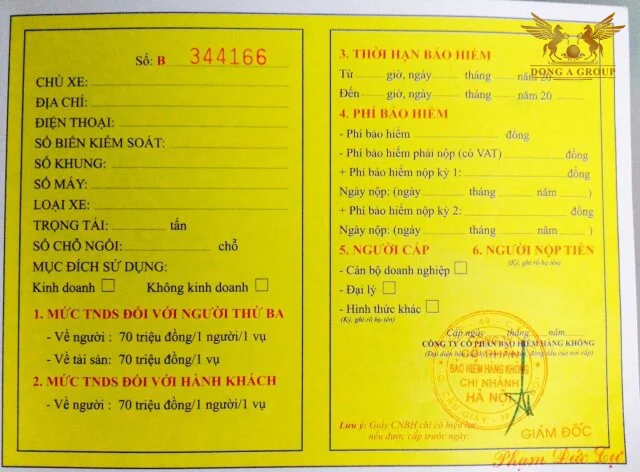 Số: B 344166
CHỦ XE:
ĐỊA CHỈ:
ĐIỆN THOẠI:
SỐ BIỂN KIỂM SOÁT:
SỐ KHUNG:
SỐ MÁY:
LOẠI XE:
TRỌNG TẢI: tấn
SỐ CHỖ NGỒI: chỗ
MỤC ĐÍCH SỬ DỤNG:
Kinh doanh Không kinh doanh
1. MỨC TNDS ĐỐI VỚI NGƯỜI THỨ BA
- Về người : 70 triệu đồng/1 người/1 vụ
- Về tài sản: 70 triệu đồng/1 vụ
2. MỨC TNDS ĐỐI VỚI HÀNH KHÁCH
- Về người : 70 triệu đồng/1 người/1 vụ
DONG A GROUP
3. THỜI HẠN BẢO HIỂM
Từ giờ, ngày tháng năm 20
Đến giờ, ngày tháng năm 20
4. PHÍ BẢO HIỂM
- Phí bảo hiểm đồng
- Phí bảo hiểm phải nộp (có VAT) đồng
+ Phí bảo hiểm nộp kỳ 1: đồng
Ngày nộp: (ngày tháng năm )
+ Phí bảo hiểm nộp kỳ 2: đồng
Ngày nộp: (ngày tháng năm )
5. NGƯỜI CẤP 6. NGƯỜI NỘP TIỀN
(Ký, ghi rõ họ tên)
- Cán bộ doanh nghiệp
- Đại lý
- Hình thức khác
(Ký, ghi rõ họ tên)
Cấp ngày tháng năm
CÔNG TY CỔ PHẦN BẢO HIỂM HÀNG KHÔNG
BẢO HIỂM HÀNG KHÔNG
CHI NHÁNH
HÀ NỘI
Q. CẦU GIẤY
Lưu ý: Giấy CNBH chỉ có hiệu lực
nếu được cấp trước ngày.
GIÁM ĐỐC
Phạm Đức Tộc